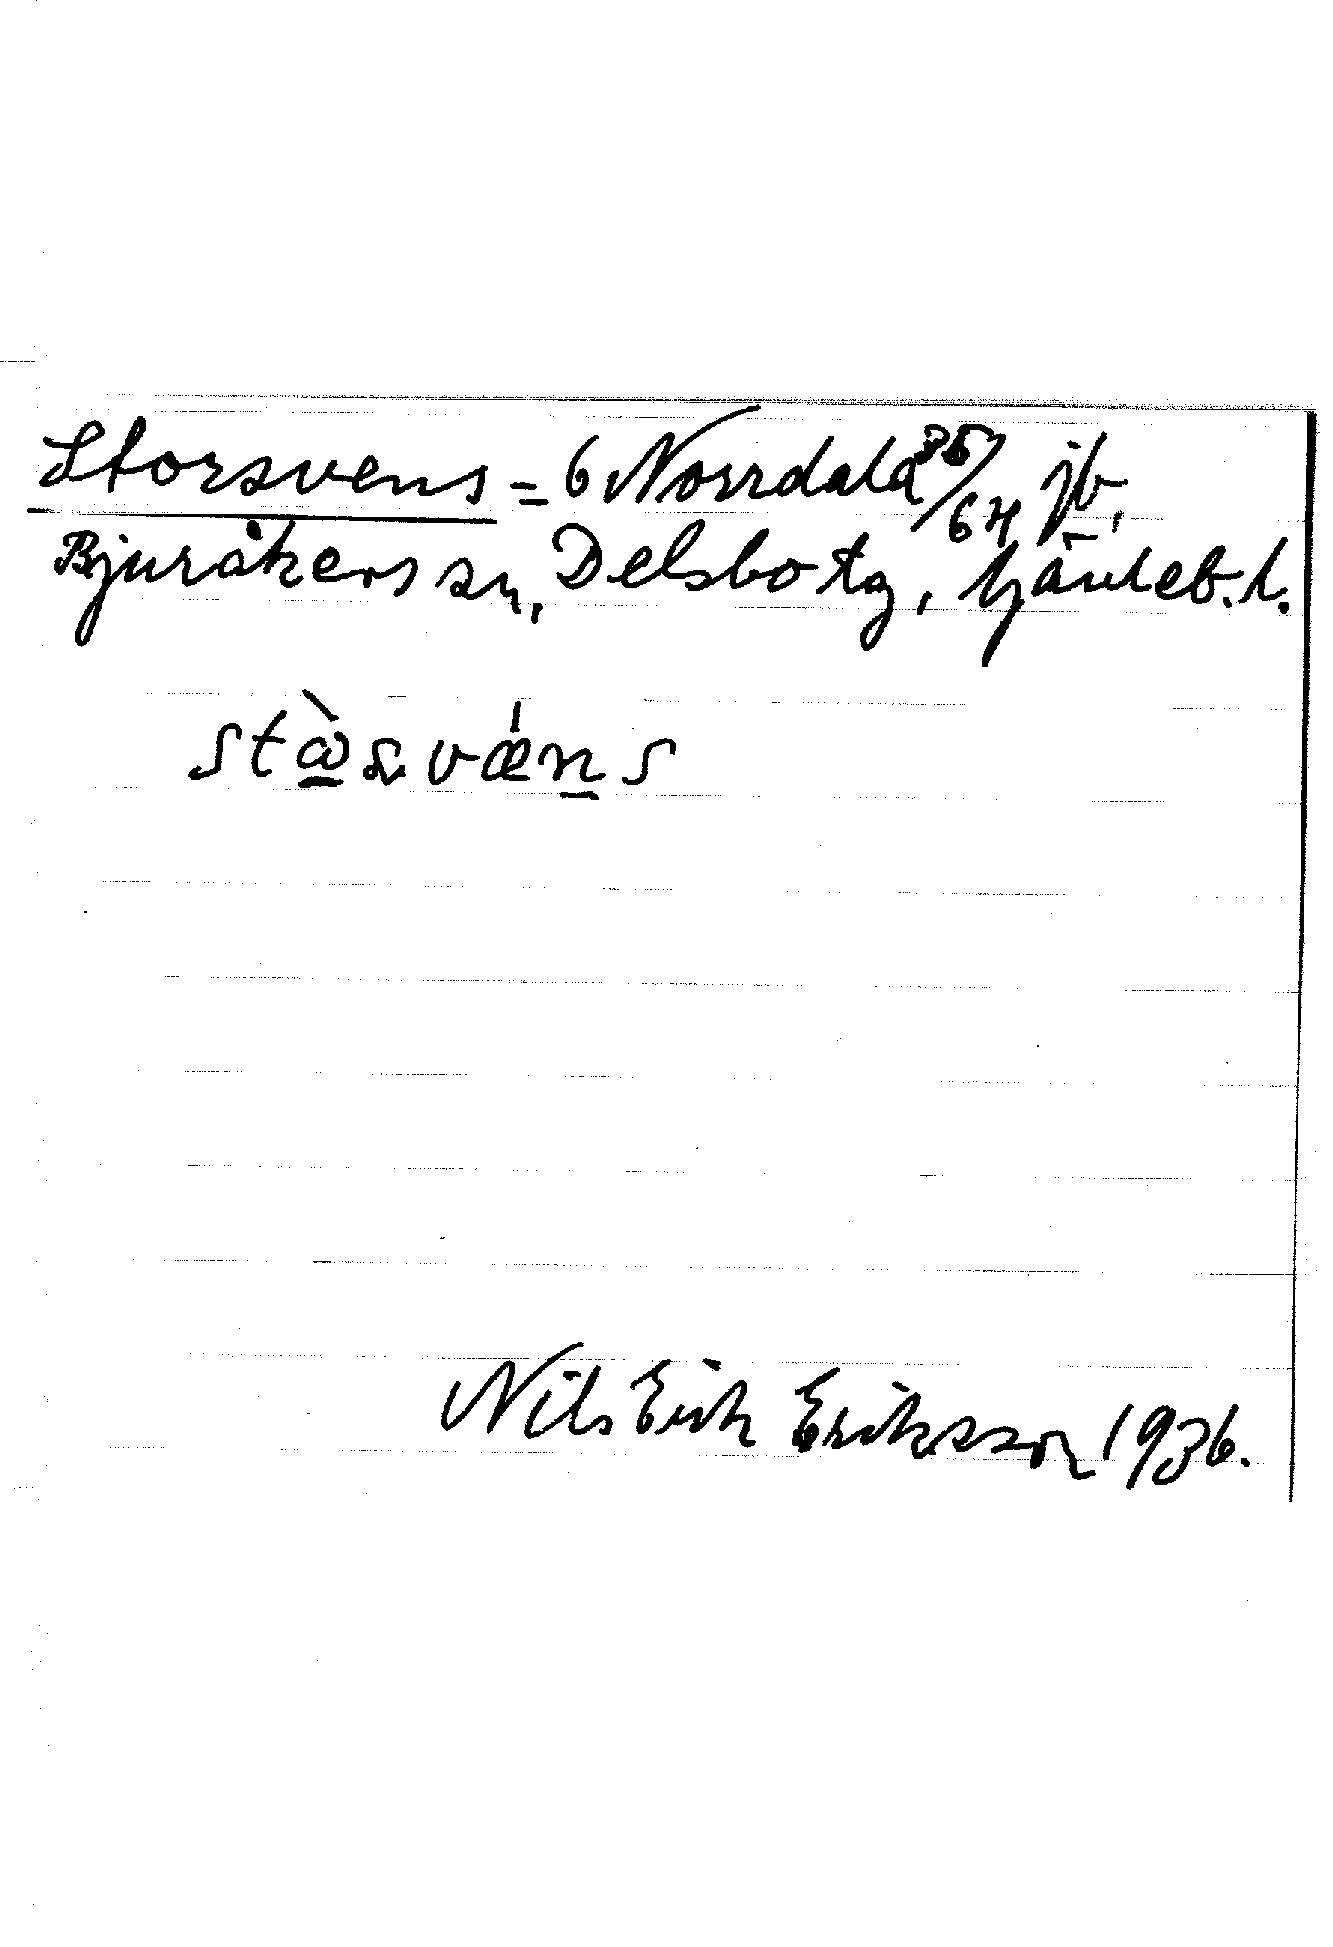 Storsvens = 6 Norrdala 35/64 jb,
Bjuråkers sn, Delsbo tg, Gävleb. l.
Nils Erik Eriksson 1936.